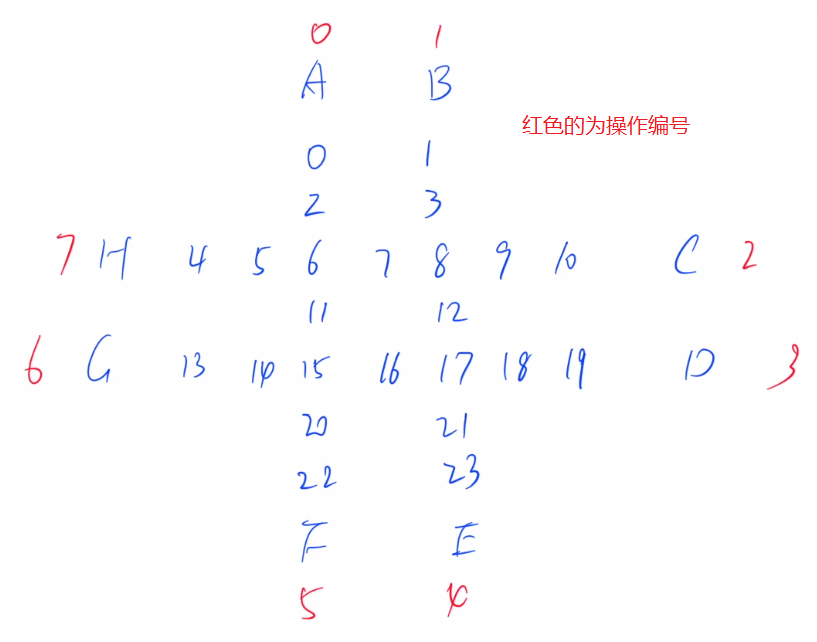 0 1
A B
红色的为操作编号
0 1
2 3
7 H 4 5 6 7 8 9 10 C 2
11 12
6 G 13 14 15 16 17 18 19 D 3
20 21
22 23
F E
5 4